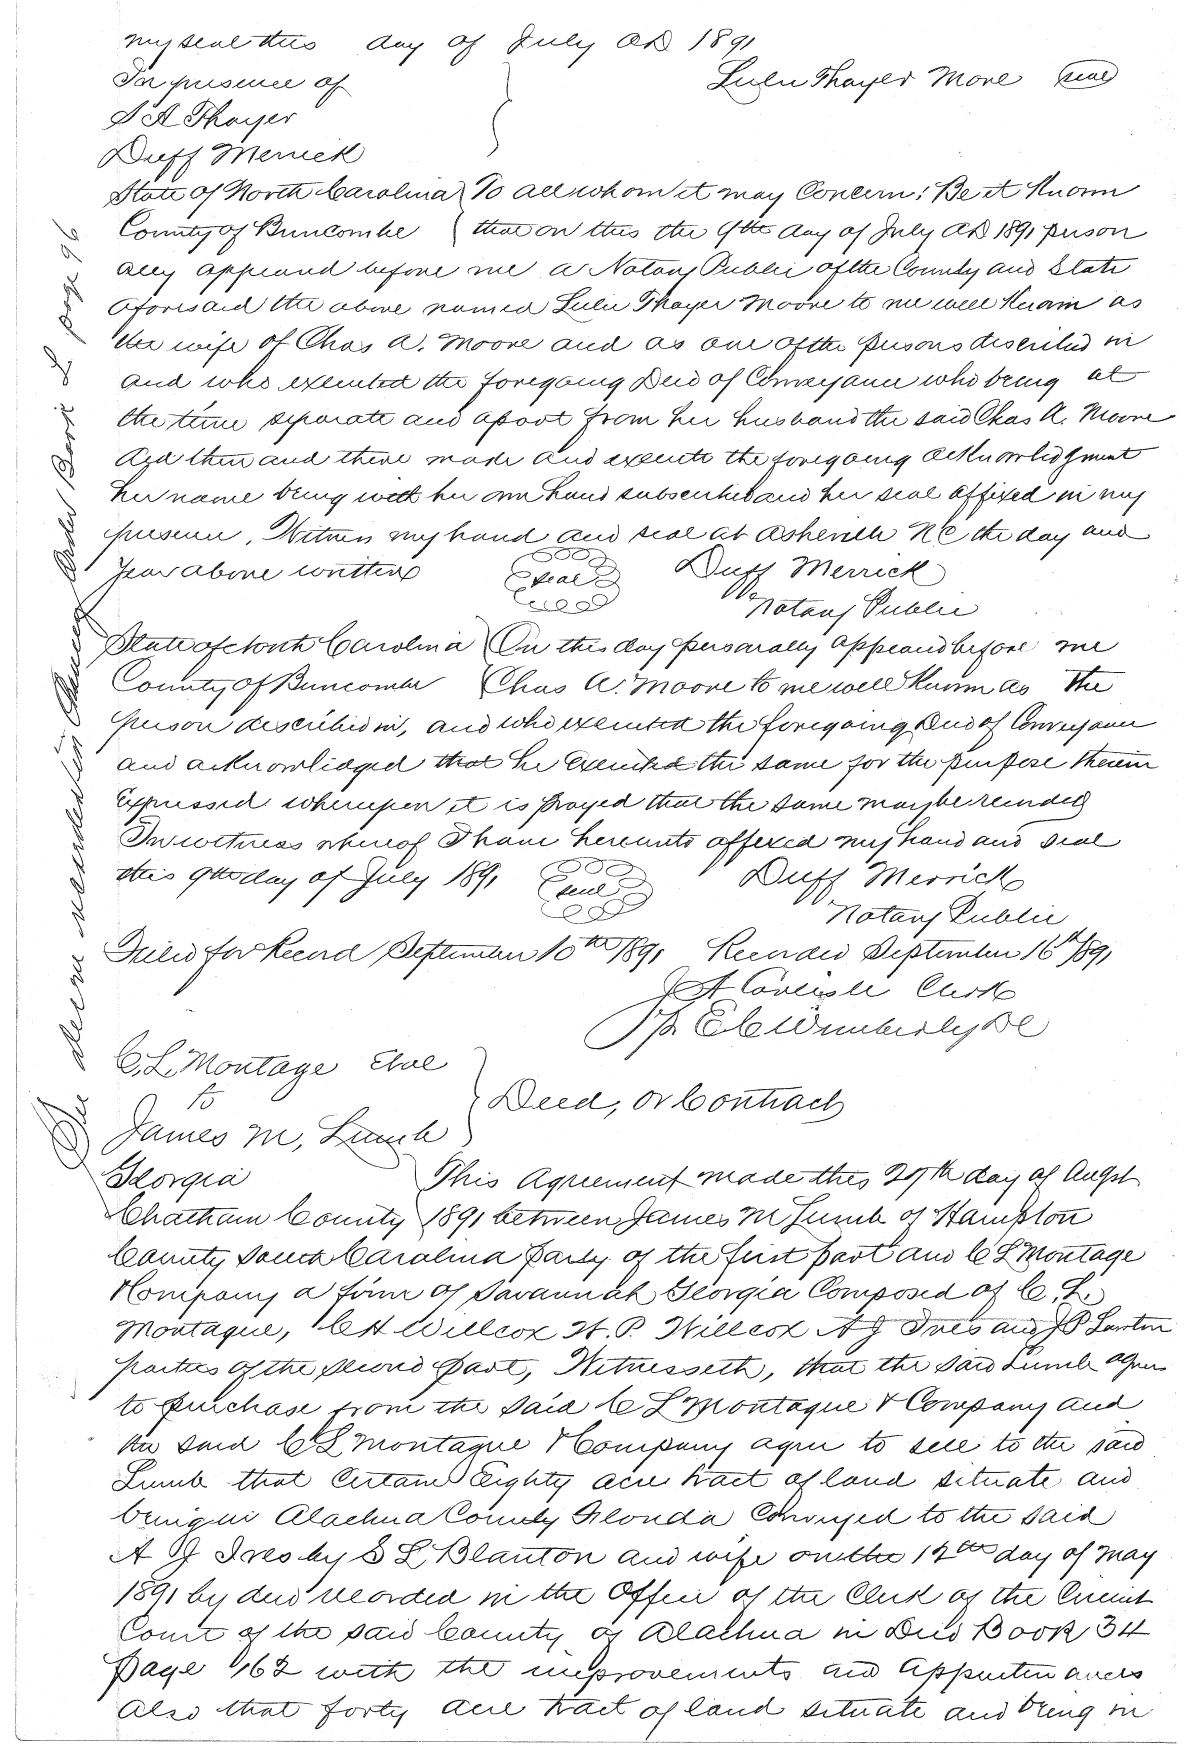 my seal this day of July AD 1891
In presence of Lulu Thayer More (seal)
S A Thayer
Duff Merrick
State of North Carolina To all whom it may Concern: Be it Known
County of Buncombe that on this the 9th day of July AD 1891 person
ally appeard before me a Notary Public of the County and State
aforesaid the above named Lulu Thayer Moore to me well Known as
the wife of Chas A. Moore and as one of the persons described in
and who executed the foregoing Deed of Conveyance who being at
the time separate and apart from her husband the said Chas A. Moore
did then and there made and execute the foregoing acknowledgment
her name being with her own hand subscribed and her seal affixed in my
presence. Witness my hand and seal at Asheville NC the day and
Year above written seal Duff Merrick
Notary Public
State of North Carolina On this day personally appeard before me
County of Buncombe Chas A. Moore to me well Known as The
person described in, and who executed the foregoing Deed of Conveyance
and acknowledged that he Executed the same for the purpose therein
Expressed whereupon it is prayed that the same may be recorded
In witness whereof I have hereunto affixed my hand and seal
this 9th day of July 1891 seal Duff Merrick
Notary Public
Filed for Record September 10th 1891 Recorded September 16th 1891
J A Carlisle Clerk
Pr E C Wimberly DC
C. L. Montage Etal
to Deed, or Contract
James M, Lumb
Georgia This Agreement made this 29th day of Augst
Chatham County 1891 between James M Lumb of Hampton
County South Carolina Party of the first part and C L Montage
& Company a firm of Savannah Georgia Composed of C. L.
Montague, C H Willcox W. P. Willcox A J Ives and J P Lawton
parties of the second part, Witnesseth, that the said Lumb agrees
to purchase from the said C L Montague & Company and
the said C L Montague & Company agree to sell to the said
Lumb that Certain Eighty acre tract of land situate and
being in Alachua County Florida Conveyed to the said
A J Ives by S L Blanton and wife on the 12th day of May
1891 by deed recorded in the Office of the Clerk of the Circuit
Court of the said County of Alachua in Deed Book 34
Page 162 with the improvements and appurtenances
Also that forty acre tract of land situate and being in
See decree recorded in Chancery Order Book L page 96